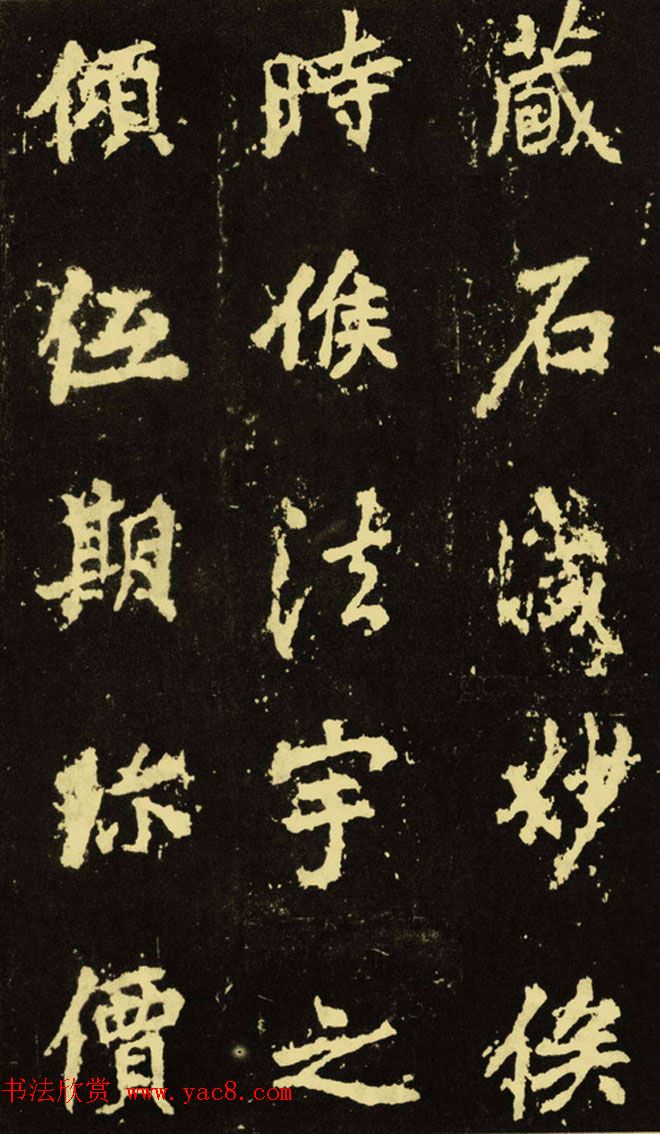 蔵石妙俟
時候法宇之
傾伍期珎價
书法欣赏 www.yac8.com